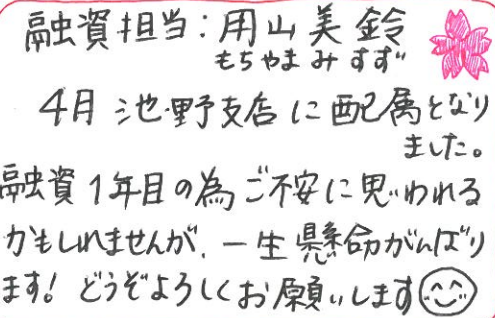 融資担当:用山美鈴
もちやまみすず
4月池野支店に配属となり
ました。
融資1年目の為ご不安に思われる
かもしれませんが、一生懸命がんばり
ます!どうぞよろしくお願いします